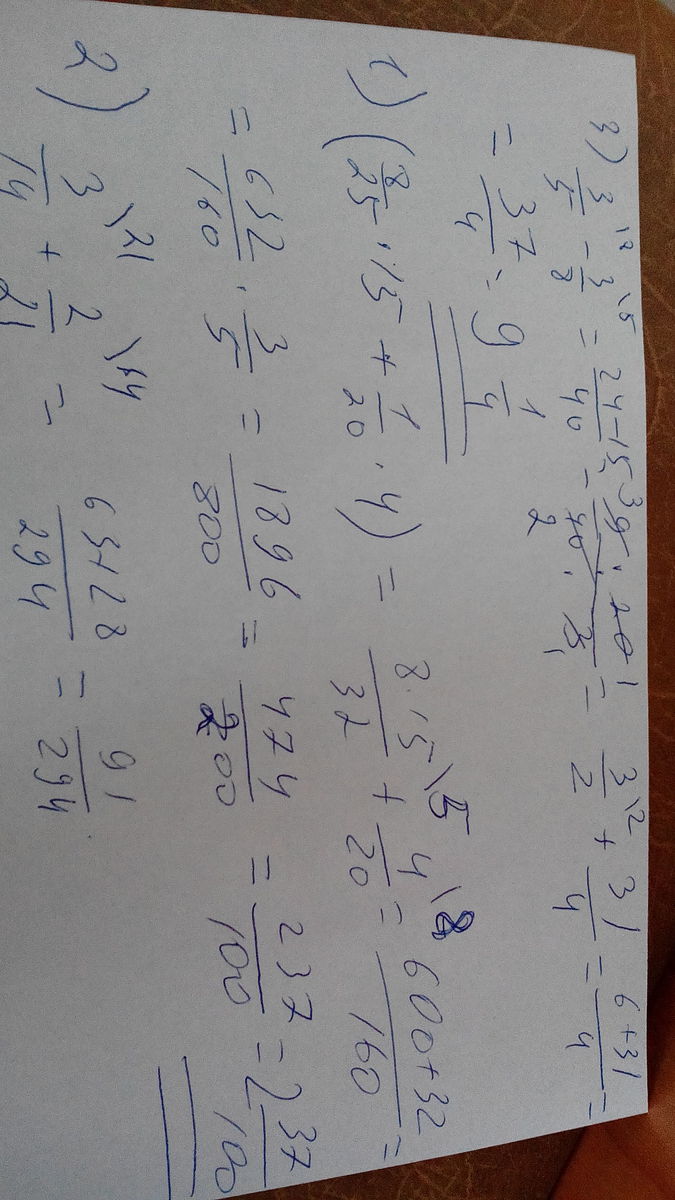 3) 3/5 \12 - 3/8 \5 = 24-15/40 - 3 9 · 20 1/40 2 · 3 1 = 3/2 \2 + 31/4 = 6+31/4 =
= 37/4 = 9 1/4
1) (8/25 · 15 + 1/20 · 4) = 8·15/32 \5 + 4/20 \8 = 600+32/160 =
= 632/160 · 3/5 = 1896/800 = 474/200 = 237/100 = 2 37/100
2) 3/14 \21 + 2/21 \14 = 63+28/294 = 91/294.